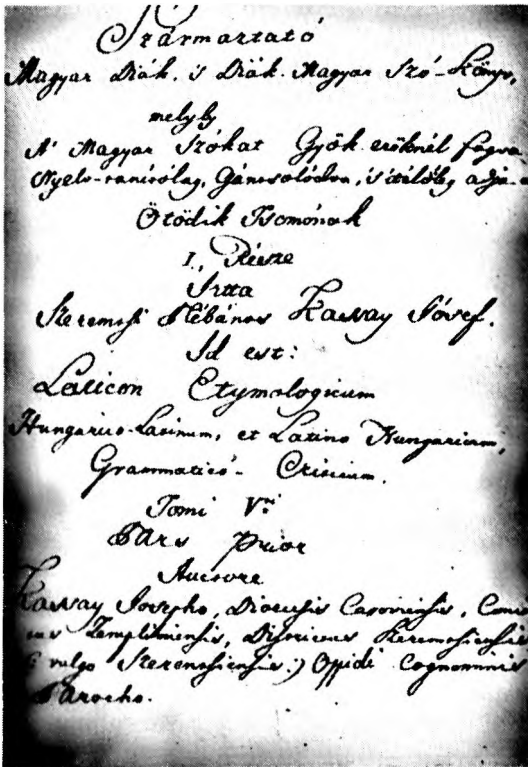 Származtató
Magyar Diák, is Diák-Magyar Szó-Könyv,
melyly
A' Magyar Szókat Gyök-erüknél fogva
Nyelv-tanítólag, Gáncsolódva, is ítélőleg adja
Ötödik Tsomónak
I. Része
Irta
Szerentsi Plébános Kassay Jósef.
Id est:
Lexicon Etymologicum
Hungarico-Latinum, et Latino Hungaricum,
Grammatico- Criticum.
Tomi V.ti
Pars Prior
Auctore
Kassay Josepho, Diocesis Cassoviensis,
Templiniensis, Districtus
vulgo Szerentsiensis:) Oppidi Cognominis
Parocho.